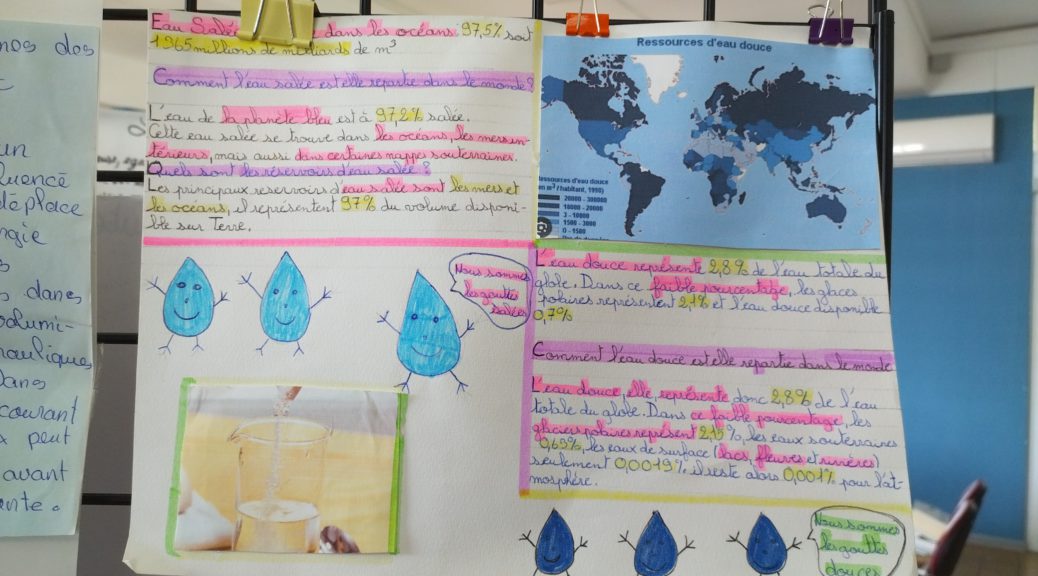 nos dos
un
quencé
déplace
gie
s
s danes
olumi-
rauliques
Dans
courant
peut
avant
nte.
Eau Salé dans les océans 97,5% soit
1 365 millions de milliards de m³
Comment l'eau salée est elle repartie dans le monde?
L'eau de la planète bleu est à 97,2% salée.
Cette eau salée se trouve dans les océans, les mers in-
térieurs, mais aussi dans certaines nappes souterraines.
Quels sont les réservoirs d'eau salée?
Les principaux réservoirs d'eau salée sont les mers et
les océans, il représentent 97% du volume disponi-
ble sur Terre.
Nous sommes
les gouttes
salées
Ressources d'eau douce
Ressources d'eau douce
en m³ / habitant, 1990)
20000 - 300000
10000 - 20000
3 - 10000
1500 - 3000
0 - 1500
L'eau douce représente 2,8% de l'eau totale du
globe. Dans ce faible pourcentage, les glaces
polaires représentent 2,1% et l'eau douce disponible
0,7%
Comment l'eau douce est elle repartie dans le monde
L'eau douce elle représente donc 2,8% de l'eau
totale du globe. Dans ce faible pourcentage, les
glaciers polaires représent 2,15%, les eaux souterraines
0,63%, les eaux de surface (lacs, fleuves et rivières)
seulement 0,0019% il reste alors 0,001% pour l'at-
mosphère.
Nous sommes
les gouttes
douces